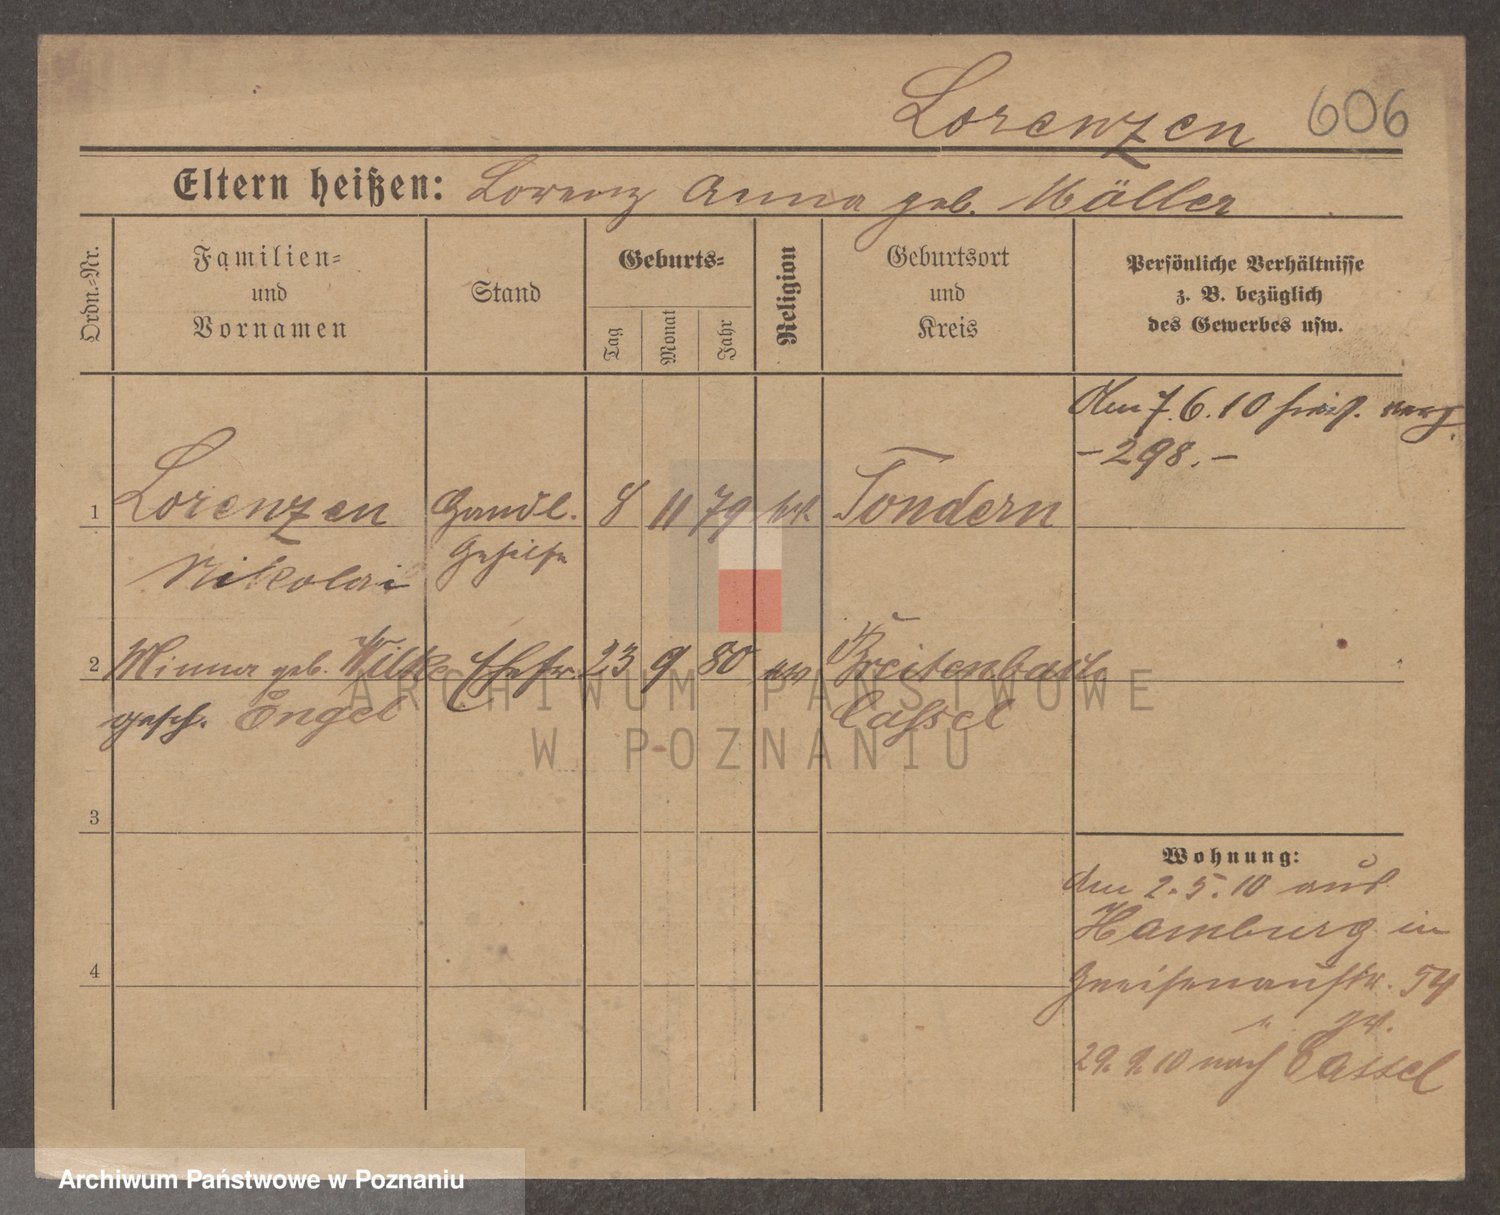 Lorenzen 606
Eltern heißen: Lorenz Anna geb. Möller
Ordn.-Nr.
Familien-
und
Vornamen
Stand
Geburts-
Tag
Monat
Jahr
Religion
Geburtsort
und
Kreis
Persönliche Verhältnisse
z. B. bezüglich
des Gewerbes usw.
Den 7.6.10
-298.-
1 Lorenzen Handl. 8 11 79 Tondern
Nikolai Gehilfe
2 Minna geb. Wilke Ehefr. 23 9 80 ev Breitenbach
gesch. Engel Cassel
3
4
Wohnung:
den 2.5.10 aus
Hamburg in
Gneisenaustr. 54
29.9.10 nach Cassel
ARCHIWUM PAŃSTWOWE
W POZNANIU
Archiwum Państwowe w Poznaniu